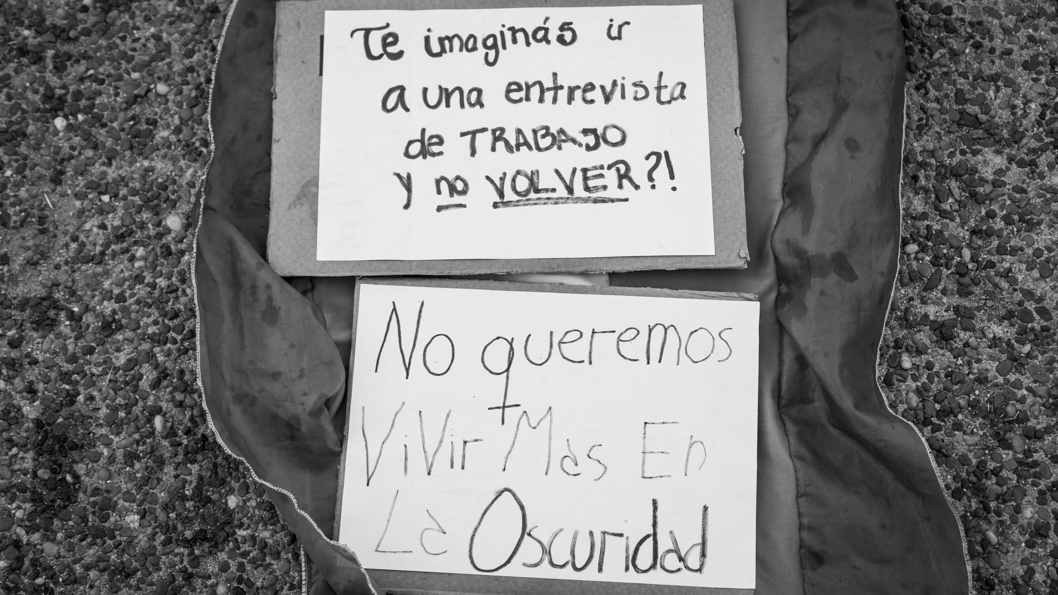 Te imaginás ir
a una entrevista
de TRABAJO
y no VOLVER?!
No queremos
ViVir Mas En
La Oscuridad